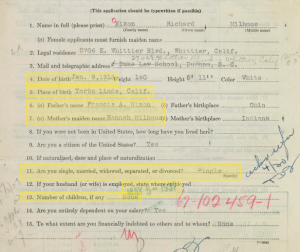 (This application should be typewritten if possible)
1. Name in full (please print) Nixon Richard Milhous
(Family name) (Given name) (Middle name)
(a) Female applicants must furnish maiden name
2. Legal residence E. Whittier Blvd., Whittier, Calif.
3. Mail and telephone address Duke Law School, Durham, N. C.
4. Date of birth Jan. 9, 1913 Weight 160 Height 5' 11" Color White
5. Place of birth Yorba Linda, Calif.
6. (a) Father's name Francis A. Nixon Father's birthplace Ohio
(b) Mother's maiden name Hannah Milhous Mother's birthplace Indiana
8. If you were not born in United States, how long have you lived here?
9. Are you a citizen of the United States? Yes
10. If naturalized, date and place of naturalization
11. Are you single, married, widowed, separated, or divorced? Single
12. If your husband (or wife) is employed, state where employed
13. Number of children, if any None
67-102459-1
14. Are you entirely dependent on your salary? Yes
15. To what extent are you financially indebted to others? None